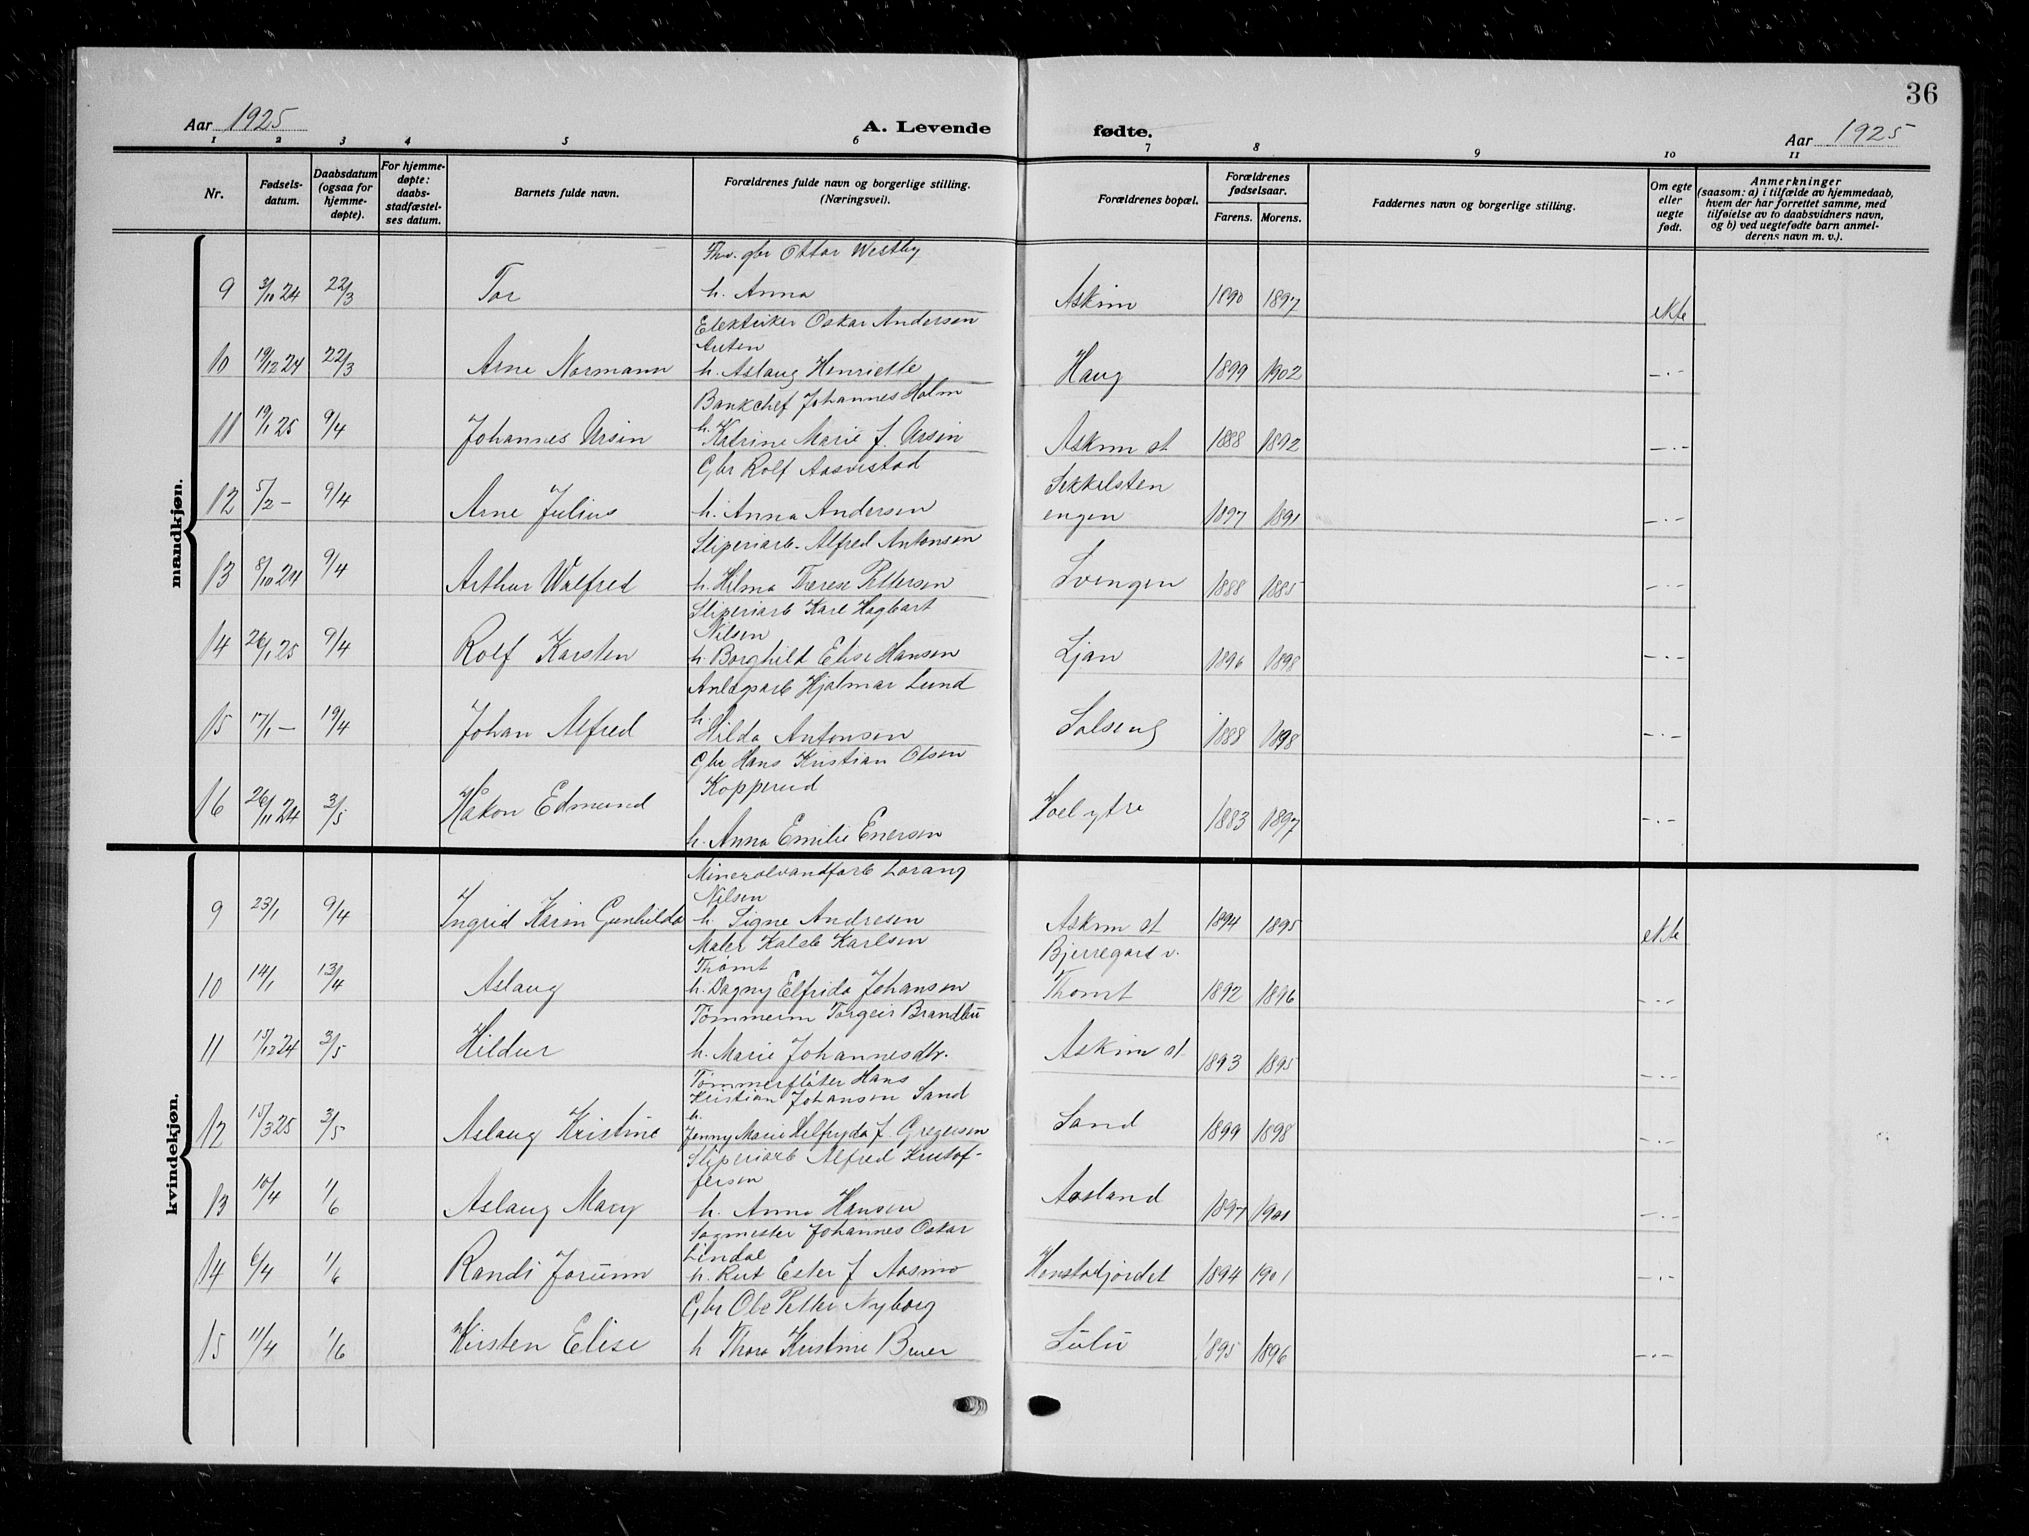 36
Aar 1925
A. Levende fødte.
Aar 1925
1 2 3 4 5 6 7 8 9 10 11
Nr.
Fødsels-
datum.
Daabsdatum
(ogsaa for
hjemme-
døpte).
For hjemme-
døpte:
daabs-
stadfæstel-
ses datum.
Barnets fulde navn.
Forældrenes fulde navn og borgerlige stilling.
(Næringsvei).
Forældrenes bopæl.
Forældrenes
fødselsaar.
Farens. Morens.
Faddernes navn og borgerlige stilling.
Om egte
eller
uegte
født.
Anmerkninger
(saasom: a) i tilfælde av hjemmedaab,
hvem der har forrettet samme, med
tilføielse av to daabsvidners navn,
og b) ved uegtefødte barn anmel-
derens navn m. v.).
mandkjøn.
gbr Ottar Westby
9 3/10 24 22/3 Tor h. Anna Askim 1890 1897 ekte
Elektriker Oskar Andersen
10 19/12 24 22/3 Arne Normann h. Aslaug Henriette Haug 1899 1902 -.-
Bankchef Johannes Holm
11 19/1 25 9/4 Johannes Ursin h. Katrine Marie f. Ursin Askim st 1888 1892 -.-
Gbr Rolf Aasvestad
12 5/2 - 9/4 Arne Julius h. Anna Andersen Sekkelsten
engen 1897 1891 -.-
Sliperiarb. Alfred Antonsen
13 8/10 24 9/4 Arthur Walfred h. Hilma Therese Pettersen Svengen 1888 1885 -.-
Sliperiarb Karl Hagbart
Nilsen
14 26/1 25 9/4 Rolf Karsten h. Borghild Elise Hansen Ljan 1896 1898 -.-
Anlægsarb Hjalmar Lund
15 17/1 - 19/4 Johan Alfred h. Hilda Antonsen Solseng 1888 1898 -.-
Gbr Hans Kristian Olsen
Kopperud
16 26/11 24 3/5 Håkon Edmund h. Anna Emilie Enersen Hoel ytre 1883 1897 -.-
kvindekjøn.
Mineralvandfarb Lorang
Nilsen
9 23/1 9/4 Ingrid Karin Gunhilda h. Signe Andresen Askim st 1894 1895 ekte
Maler Kaleb Karlsen
Thømt
10 14/1 13/4 Aslaug h. Dagny Elfrida Johansen Bjerregard v.
Thømt 1892 1896 -.-
Tømmerm Torgeir Brandlu
11 15/12 24 3/5 Hildur h. Marie Johannesdtr. Askim st 1893 1895 -.-
Tømmerfløter Hans
Kristian Johansen Sand
12 15/3 25 3/5 Aslaug Kristine h. Jenny Marie Helfryda f. Gregersen Sand 1899 1898 -.-
Sliperiarb Alfred Kristof-
fersen
13 10/4 1/6 Aslaug Mary h. Anna Hansen Aasland 1897 1901 -.-
Sagmester Johannes Oskar
Lindal
14 6/4 1/6 Randi Jorunn h. Rut Ester f Aasmo 1894 1901 -.-
Gbr Ole Petter Nyborg
15 11/4 1/6 Kirsten Elise h Thora Kristine Buer Lulu 1895 1896 -.-